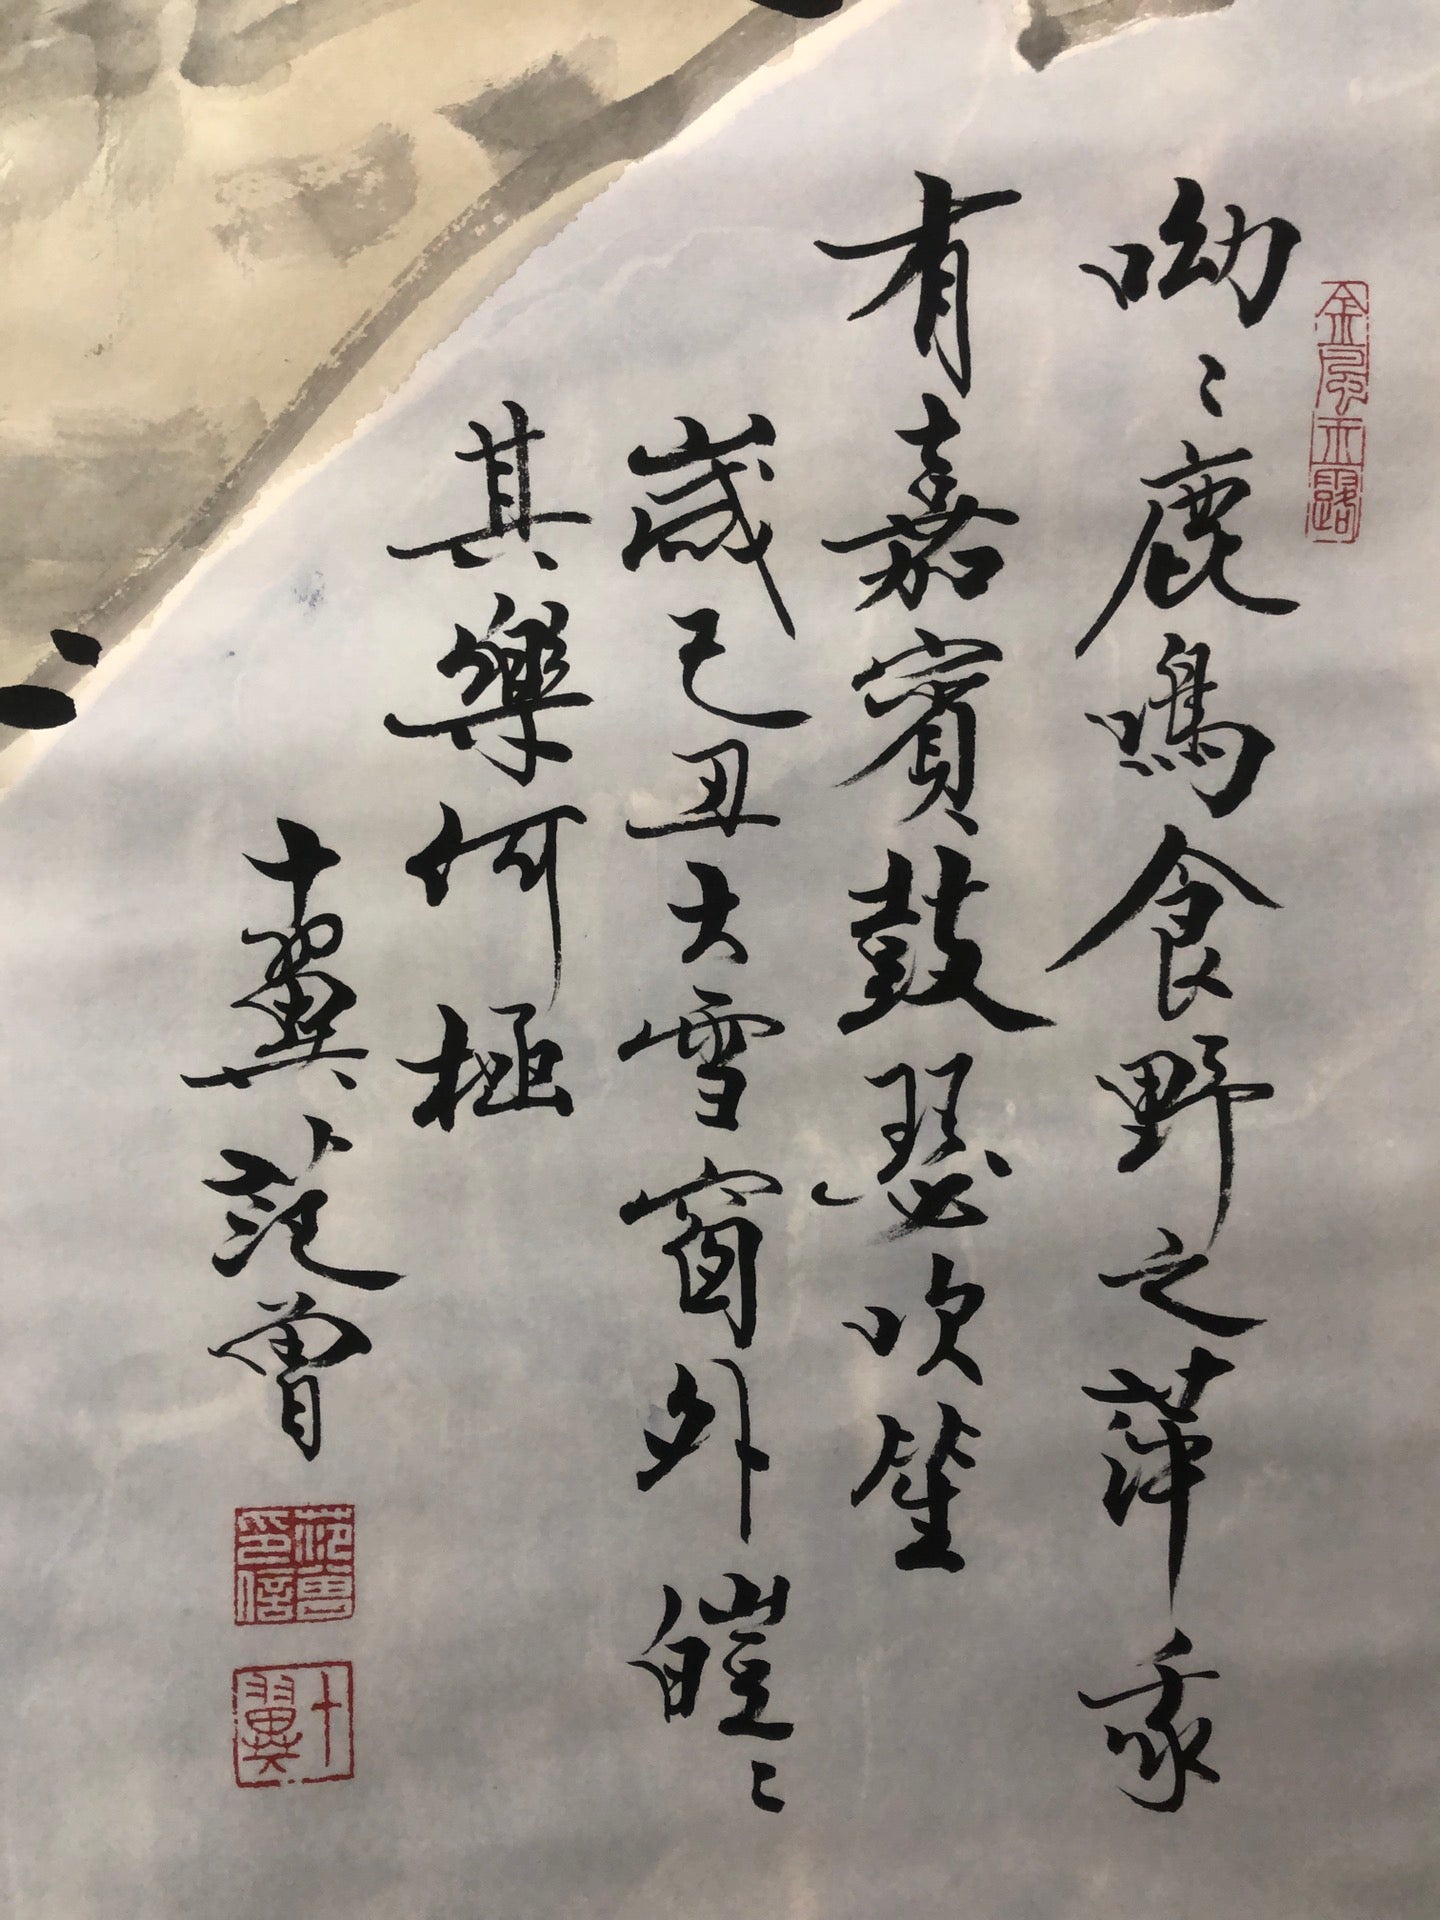 金風玉露
呦〻鹿鳴食野之苹我
有嘉賓鼓瑟吹笙
歲己丑大雪窗外皚〻
其樂何極
十翼范曾
范曾印信
十翼